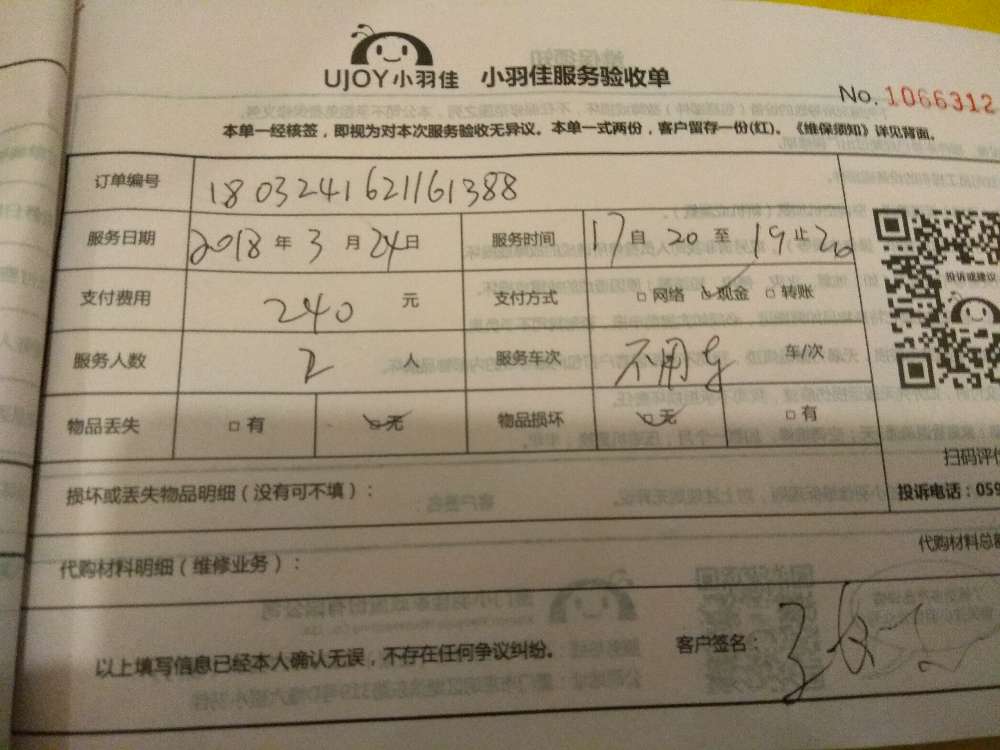 UJOY小羽佳 小羽佳服务验收单
No. 1066312
本单一经核签，即视为对本次服务验收无异议。本单一式两份，客户留存一份(红)。《维保须知》详见背面。
订单编号 1803241621161388
服务日期 2018 年 3 月 24 日 服务时间 17 自 20 至 19 止 20
支付费用 240 元 支付方式 □ 网络 □ 现金 □ 转账
投诉或建议
服务人数 2 人 服务车次 不用车 车/次
物品丢失 □ 有 □ 无 物品损坏 □ 无 □ 有
扫码评
损坏或丢失物品明细（没有可不填）：
投诉电话：059
代购材料总
代购材料明细（维修业务）：
以上填写信息已经本人确认无误，不存在任何争议纠纷。 客户签名：